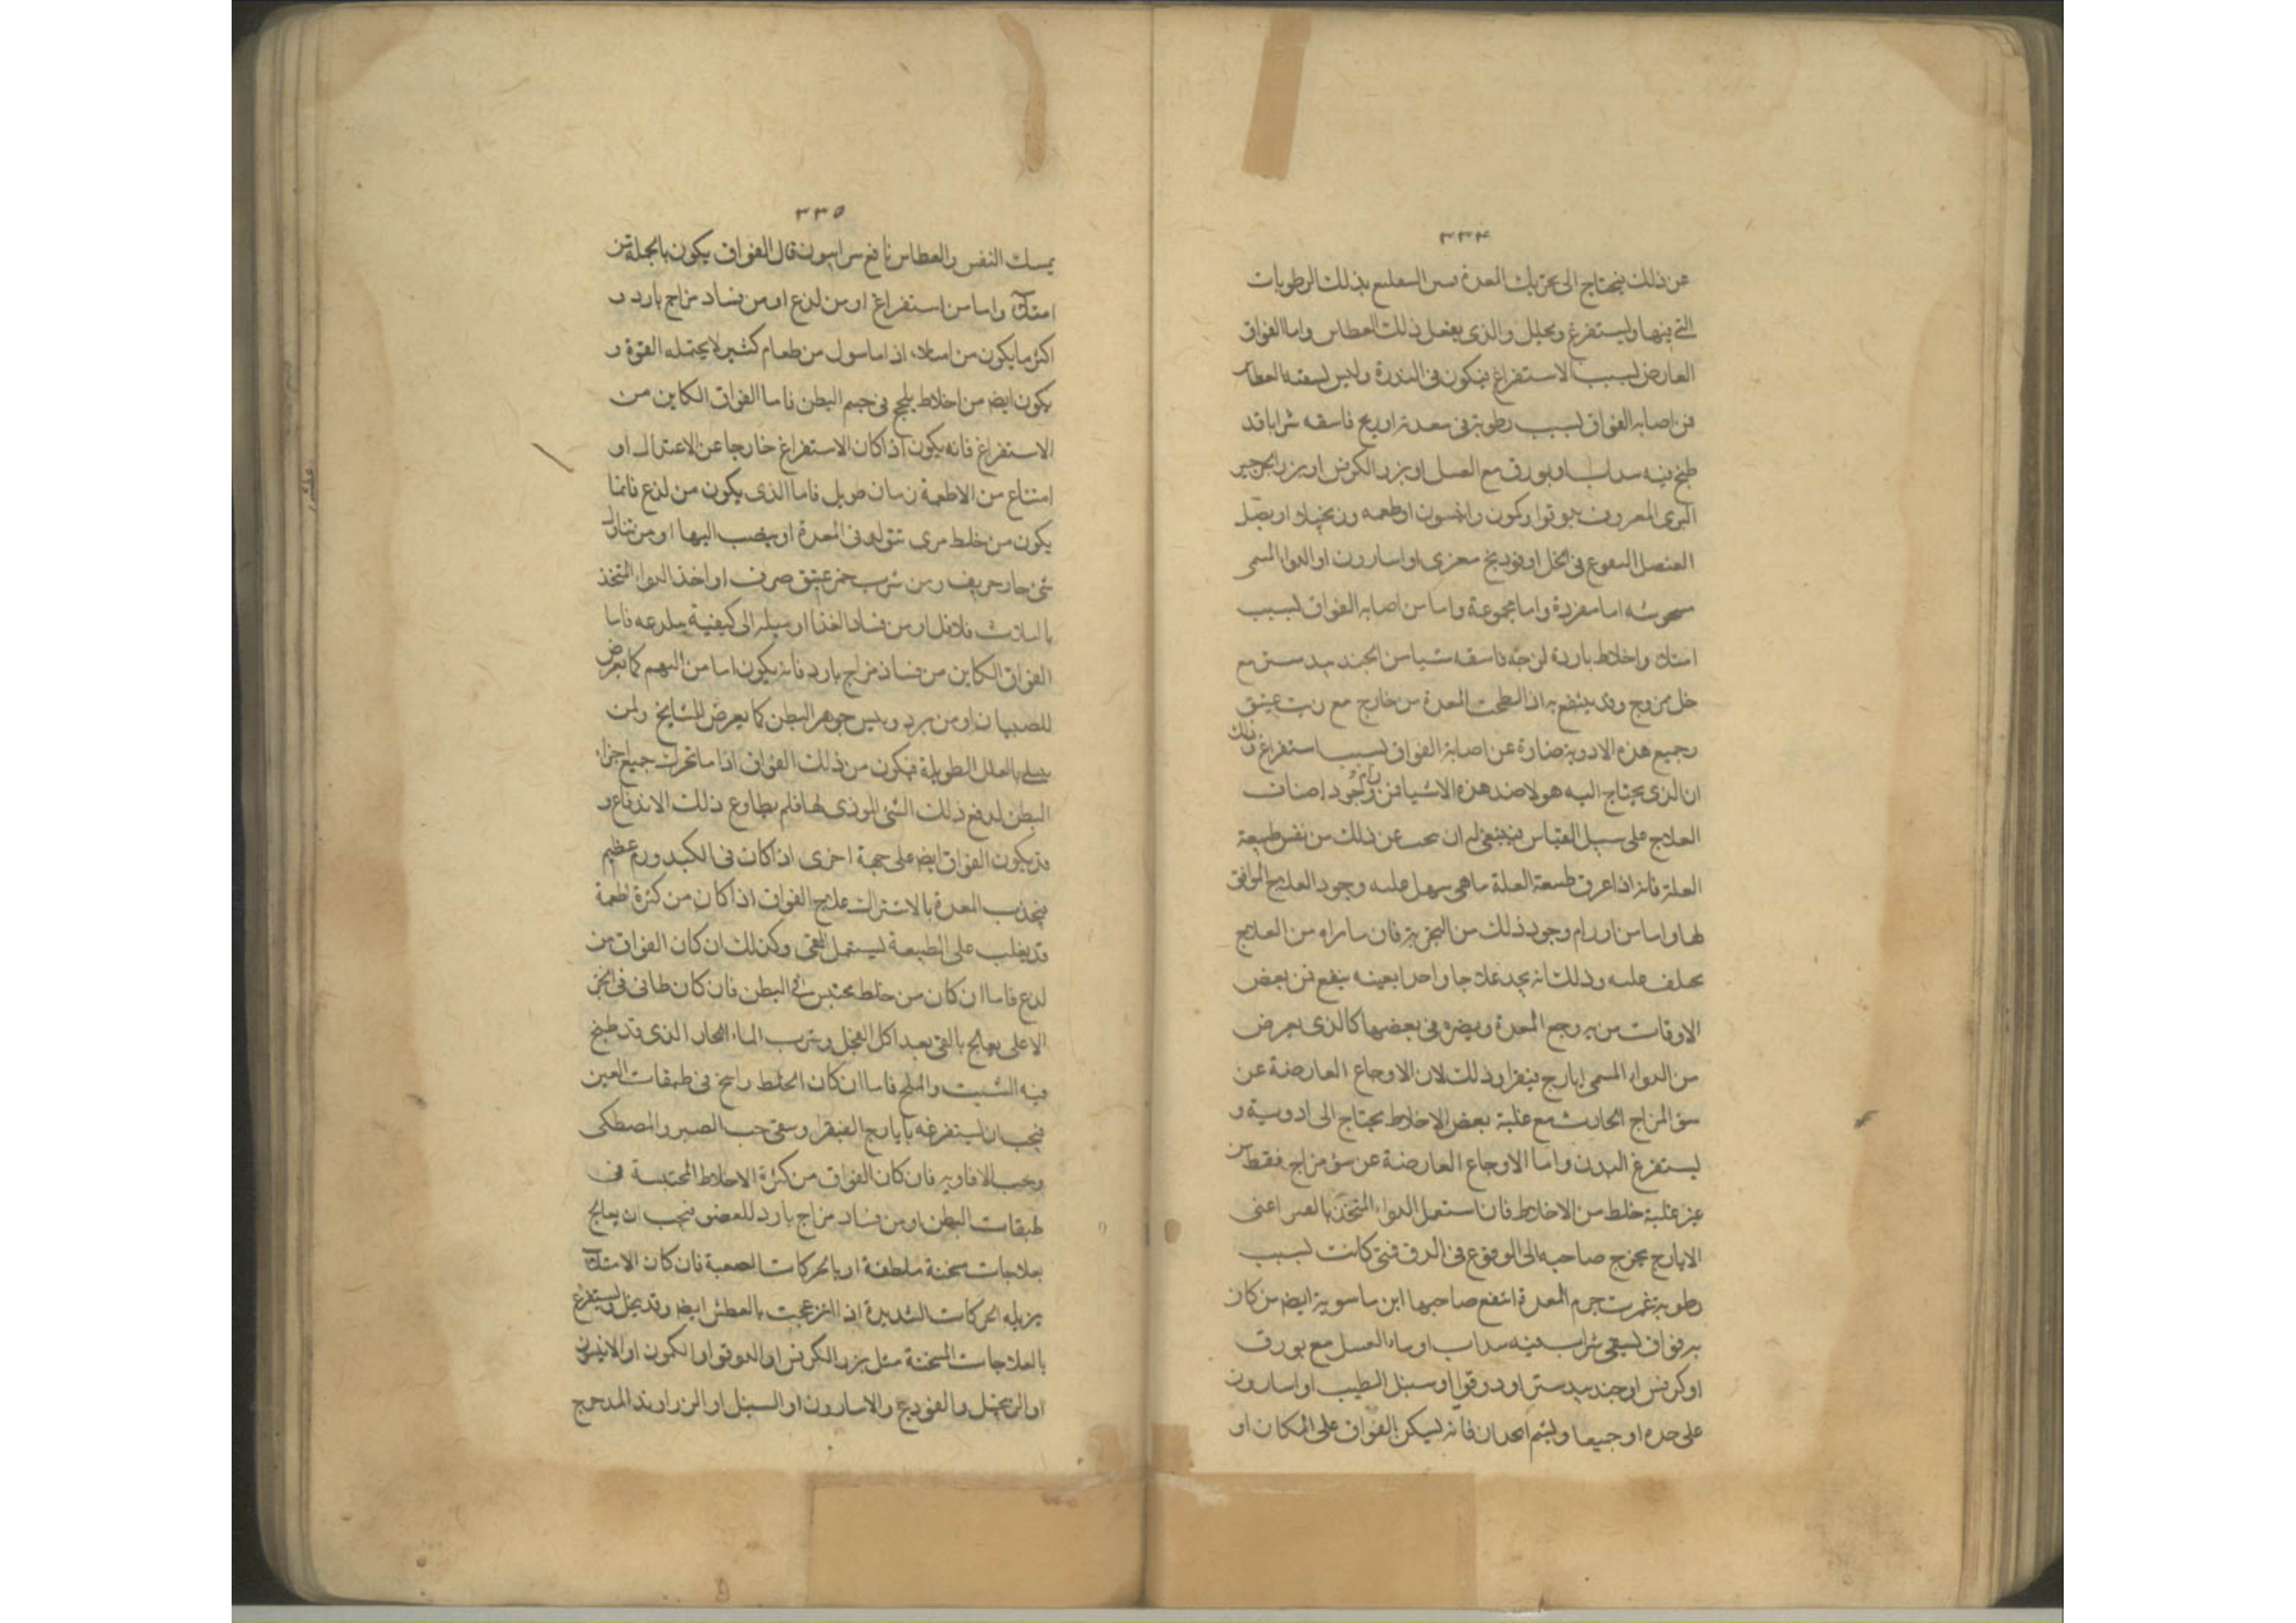 ٣٣٤
عن ذلك فيحتاج الى تحريك المعدة بذلك الرطوبات
التي فيها وليستفرغ ويحلل والذى يفعل ذلك العطاس واما الفواق
العارض لسبب الاستفراغ فيكون فى الندرة وليس يسقيه العطاس
فمن اصابه الفواق لسبب رطوبة فى معدته او ريح فاسقه شرابا قد
طبخ فيه سداب او بورق مع العسل او بزر الكرفس او بزر الجرجير
البرى المعروف بدوقوا وكمون وانيسون اوطعمه وزنجبيلا او بصل
العنصل المنقوع فى الخل او فودنج او اسارون او الدواء المسمى
اما مفردة واما مجموعة واما من اصابه الفواق لسبب
امتلاء واخلاط باردة لزجة فاسقه شيا من الجندبيدستر مع
خل ممزوج وقد ينتفع به اذا لطخت المعدة من خارج مع زيت عتيق
وجميع هذه الادوية ضارة عن اصابة الفواق لسبب استفراغ وذلك
ان الذى يحتاج اليه هولا ضد هذه الاشيا فمن وجود اصناف
العلاج على سبيل القياس فينبغى له ان يبحث عن ذلك من نفس طبيعة
العلة فانه اذا عرف طبيعة العلة ما هى سهل عليه وجود العلاج الموافق
لها واما من اورام وجود ذلك من التجربة فان ما يراه من العلاج
يختلف عليه وذلك انه يجد علاجا واحدا بعينه ينفع فى بعض
الاوقات من به وجع المعدة ويضره فى بعضها كالذى يعرض
من الدواء المسمى ايارج فيقرا وذلك لان الاوجاع العارضة عن
سؤ المزاج الحادث مع غلبة بعض الاخلاط يحتاج الى ادوية و
ليستفرغ البدن واما الاوجاع العارضة عن سؤ مزاج فقط من
غير غلبة خلط من الاخلاط فان استعمل الدواء المتخذ بالصبر اعنى
الايارج يخرج صاحبه الى الوقوع فى الدق فمتى كانت لسبب
رطوبة غمرت جرم المعدة انتفع صاحبها ابن ماسوية ايضا من كان
به فواق ليسقى شراب فيه سداب او ماء العسل مع بورق
او كرفس او جندبيدستر او دوقوا او سنبل الطيب او اسارون
على حده او جميعا وليشم فانه ليسكن الفواق على المكان او
٣٣٥
يمسك النفس والعطاس نافع سرابيون قال الفواق يكون بالجملة من
امتلاء واما من استفراغ او من لذع او من فساد مزاج بارد و
اكثر ما يكون من امتلاء اذا من طعام كثير لا يحتمله القوة و
يكون ايضا من اخلاط يلجج فى جسم البطن فاما الفواق الكاين من
الاستفراغ فانه يكون اذا كان الاستفراغ خارجا عن الاعتدال او
امتناع من الاطعمة زمان طويل فاما الذى يكون من لذع فانما
يكون من خلط مرى تتولد فى المعدة او ينصب اليها او من تناول
شئ حار حريف ومن شرب خمر عتيق صرف او اخذ الدواء المتخذ
بالثلاث فلافل او من فساد الغذا او ميله الى كيفية ملذعة فاما
الفواق الكاين من فساد مزاج بارد فانه يكون اما من البهم كما يعرض
للصبيان او من برد ويبس جوهر البطن كما يعرض للمشايخ ولمن
بالعلل الطويلة فيكون من ذلك الفواق اذا ما تحرك جميع اجزاء
البطن لدفع ذلك الشئ الموذى لها فلم يطاوع ذلك الاندفاع و
قد يكون الفواق ايضا على جهة اخرى اذا كان فى الكبد ورم عظيم
فيجذب المعدة بالاشتراك علاج الفواق اذا كان من كثرة اطعمة
قد يغلب على الطبيعة ليستعمل القئ وكذلك ان كان الفواق من
لذع فاما ان كان من خلط محتبس فى البطن فان كان طافى فى الجزء
الاعلى يعالج بالقئ بعد اكل الفجل وشرب الماء الحار الذى قد طبخ
فيه الشبت والملح فاما ان كان الخلط راسخ فى طبقات العين
فيجب ان ليستفرغه بايارج الفيقرا وسقى حب الصبر والمصطكى
وحب الافاويه فان كان الفواق من كثرة الاخلاط المحتبسة فى
طبقات البطن او من فساد مزاج بارد للعضو فيجب ان يعالج
بعلاجات مسخنة ملطفة او بالحركات الصعبة فان كان الامتلاء
يزيله الحركات الشديدة اذا انزعجت بالعطش ايضا وقد يحلل ويستفرغ
بالعلاجات المسخنة مثل بزر الكرفس او الدوقو او الكمون او الانيسون
او الزنجبيل والفودنج والاسارون او السنبل او الزراوند المدحرج